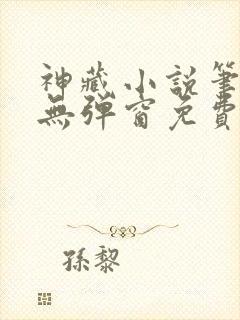 神藏小說筆
無彈窗免費
孫黎